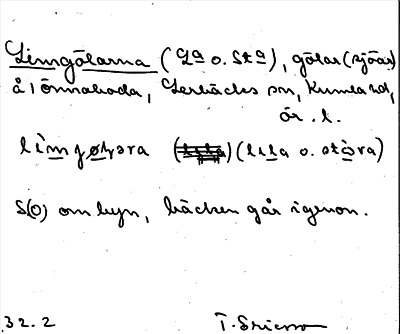 Limgölarna (La o. Sta), gölar (sjöar)
å Lönnaboda, Lerbäcks sn, Kumla hd,
ör. l.
(lilla o. stora)
S(O) om byn, bäcken går igenom.
32.2 T. Ericsson